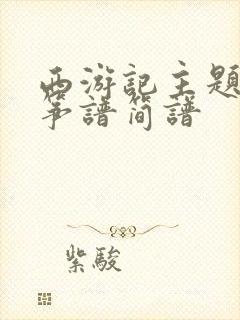 西游記主題
筝譜簡譜
紫駿